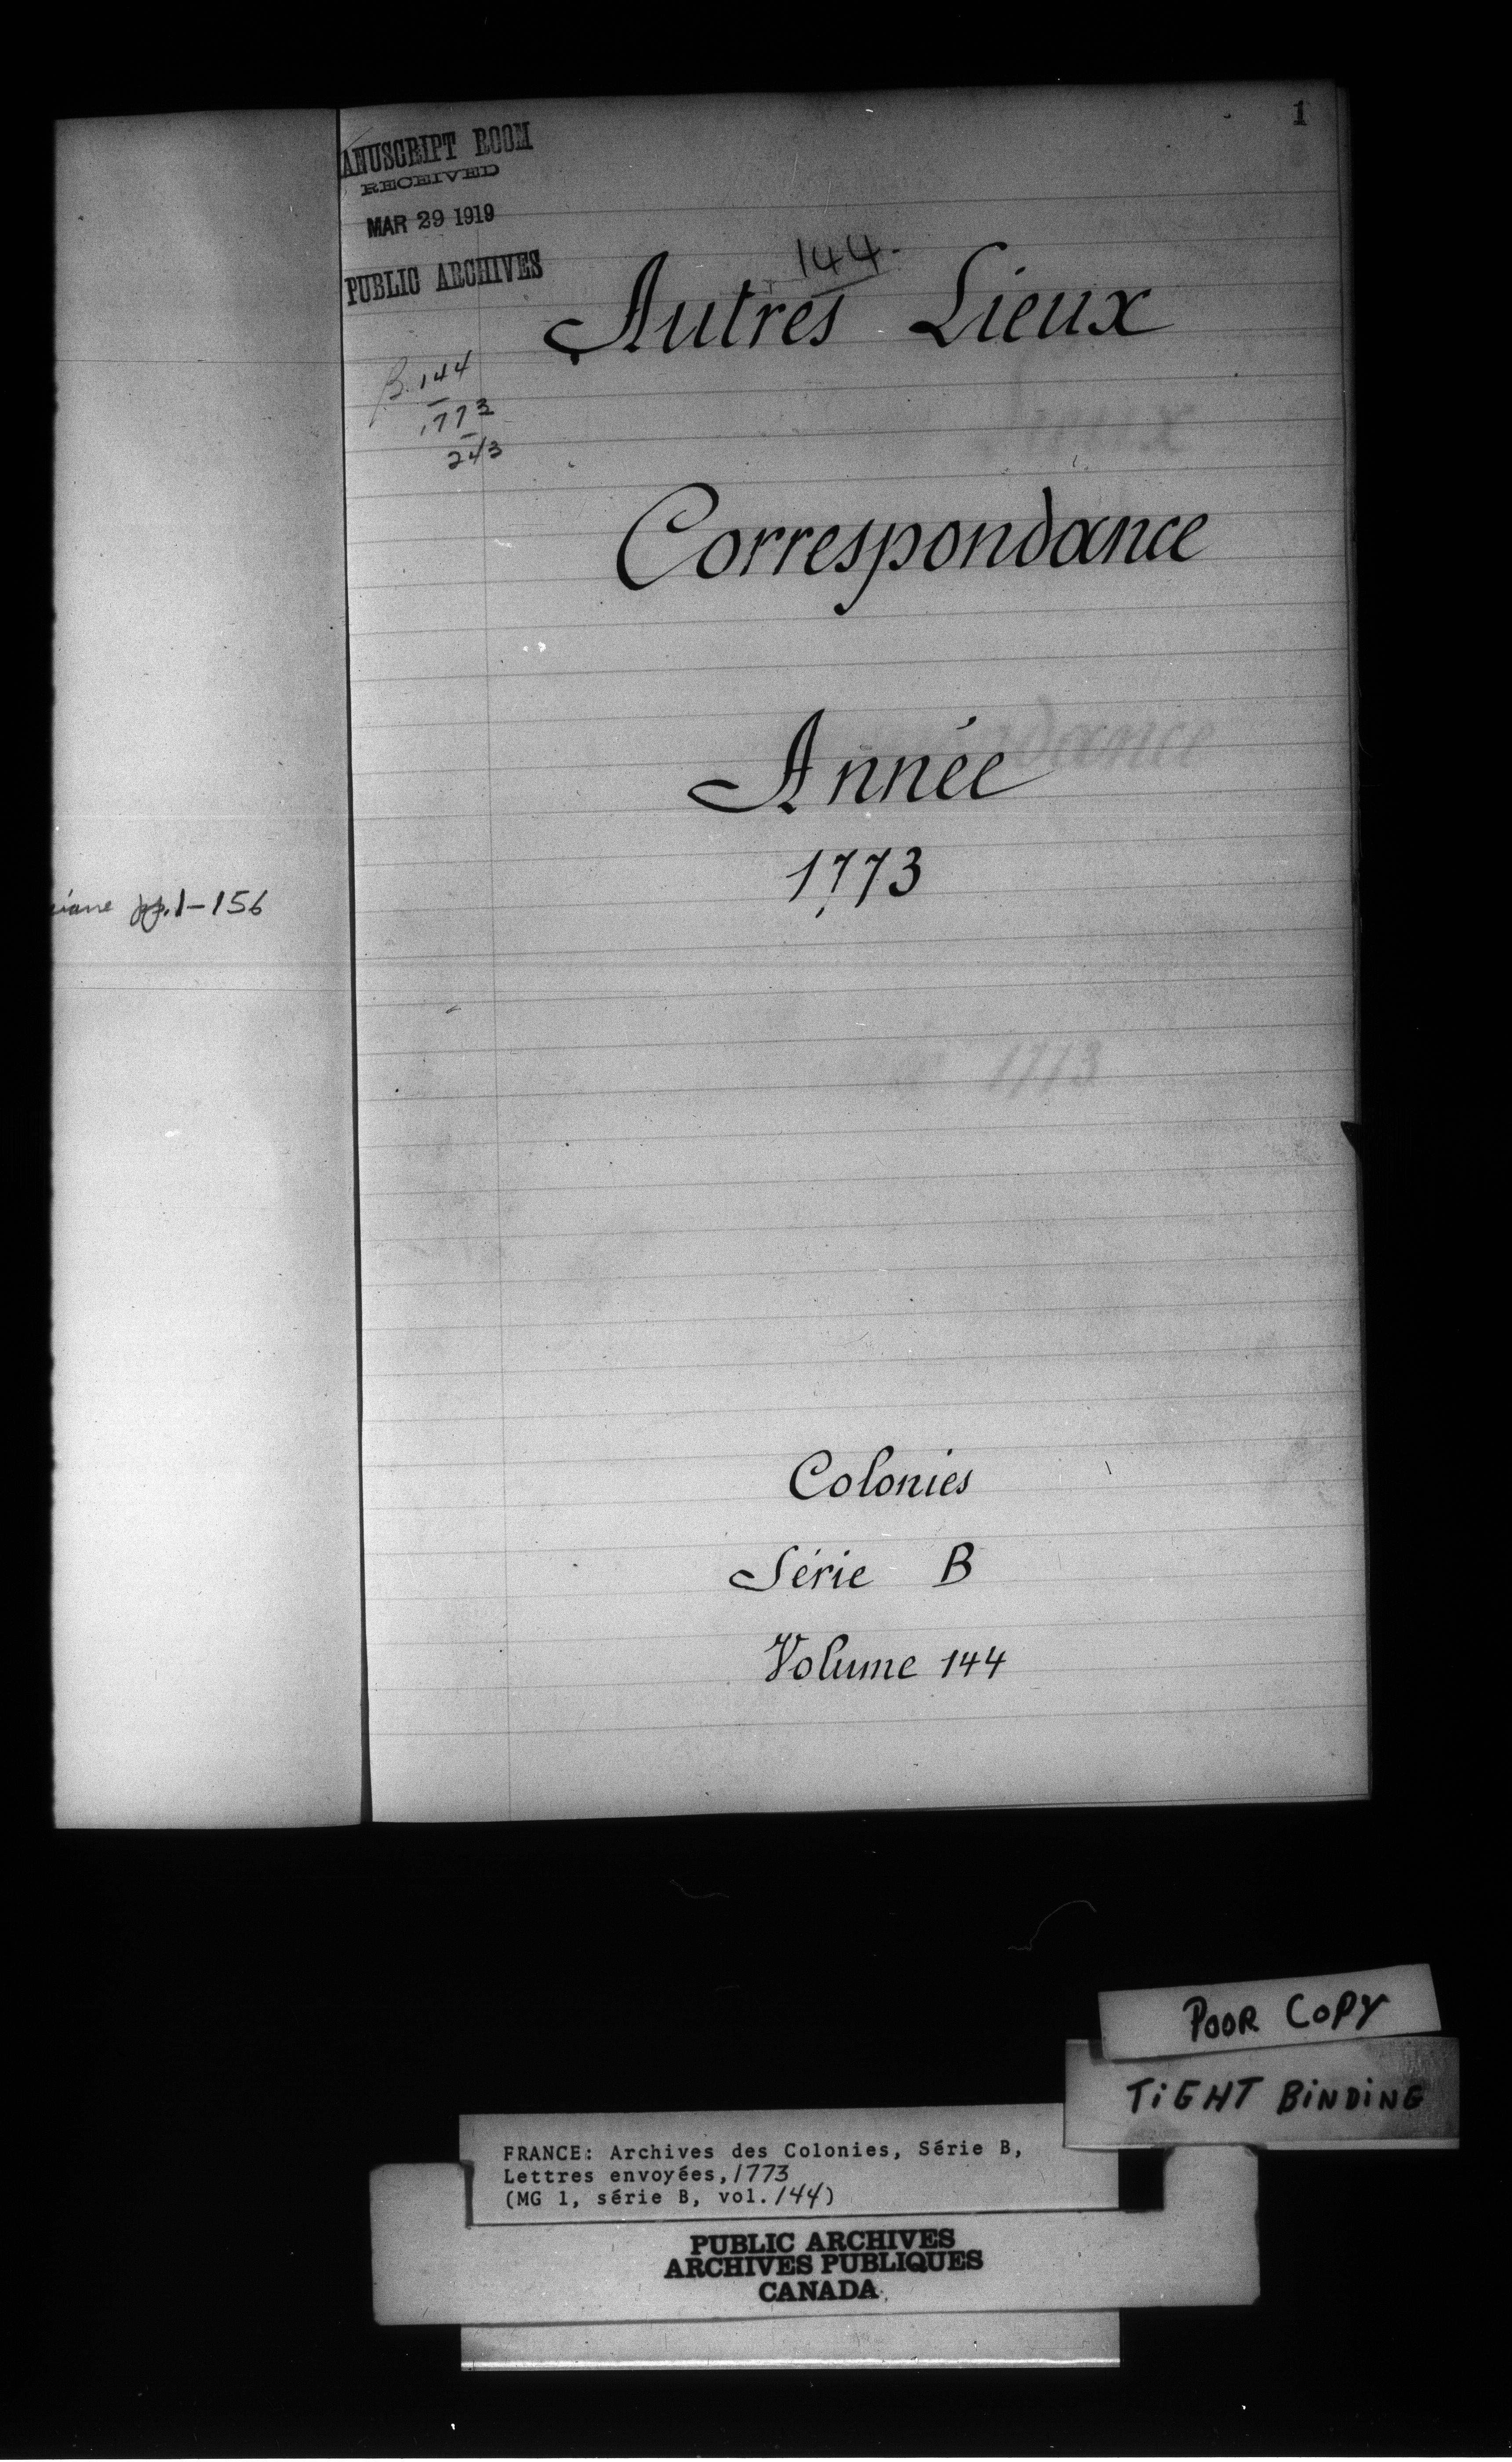 1
MANUSCRIPT ROOM
RECEIVED
MAR 29 1919
PUBLIC ARCHIVES
144.
Autres Lieux
B. 144
1773
243
Correspondance
Année
1773
pp. 1-156
Colonies
Série B
Volume 144
POOR COPY
TIGHT BINDING
FRANCE: Archives des Colonies, Série B,
Lettres envoyées, 1773
(MG 1, série B, vol. 144)
PUBLIC ARCHIVES
ARCHIVES PUBLIQUES
CANADA